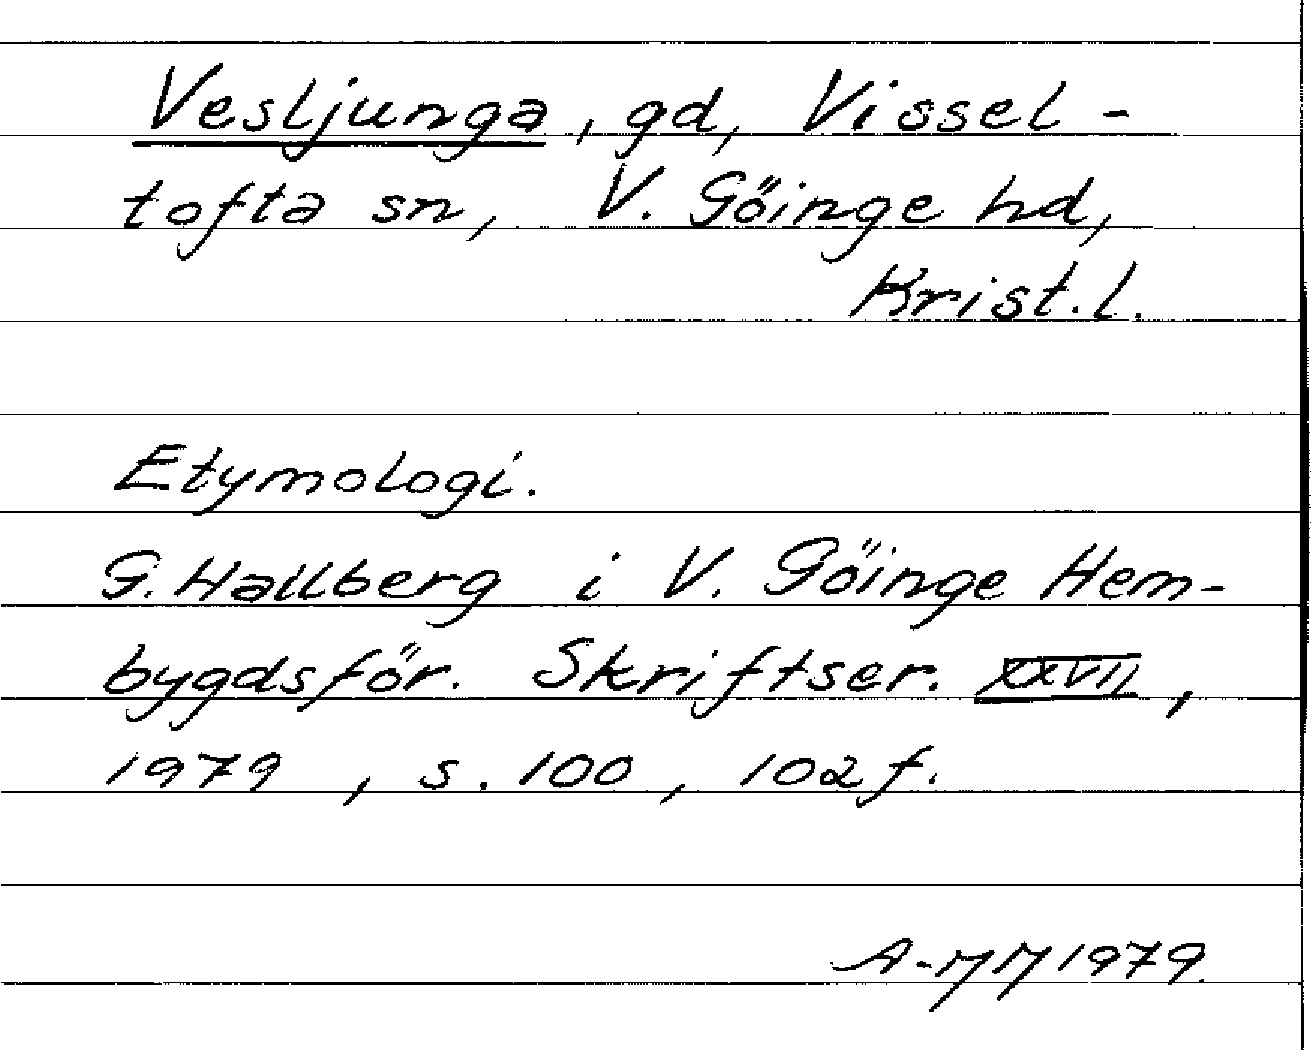 Vesljunga, gd, Vissel-
tofta sn, V. Göinge hd,
Krist.l.
Etymologi.
G. Hallberg i V. Göinge Hem-
bygdsför. Skriftser. XXVII,
1979, s. 100, 102 f.
A-MM 1979.